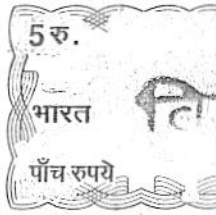 5 रु.
भारत
ति
पाँच रुपये